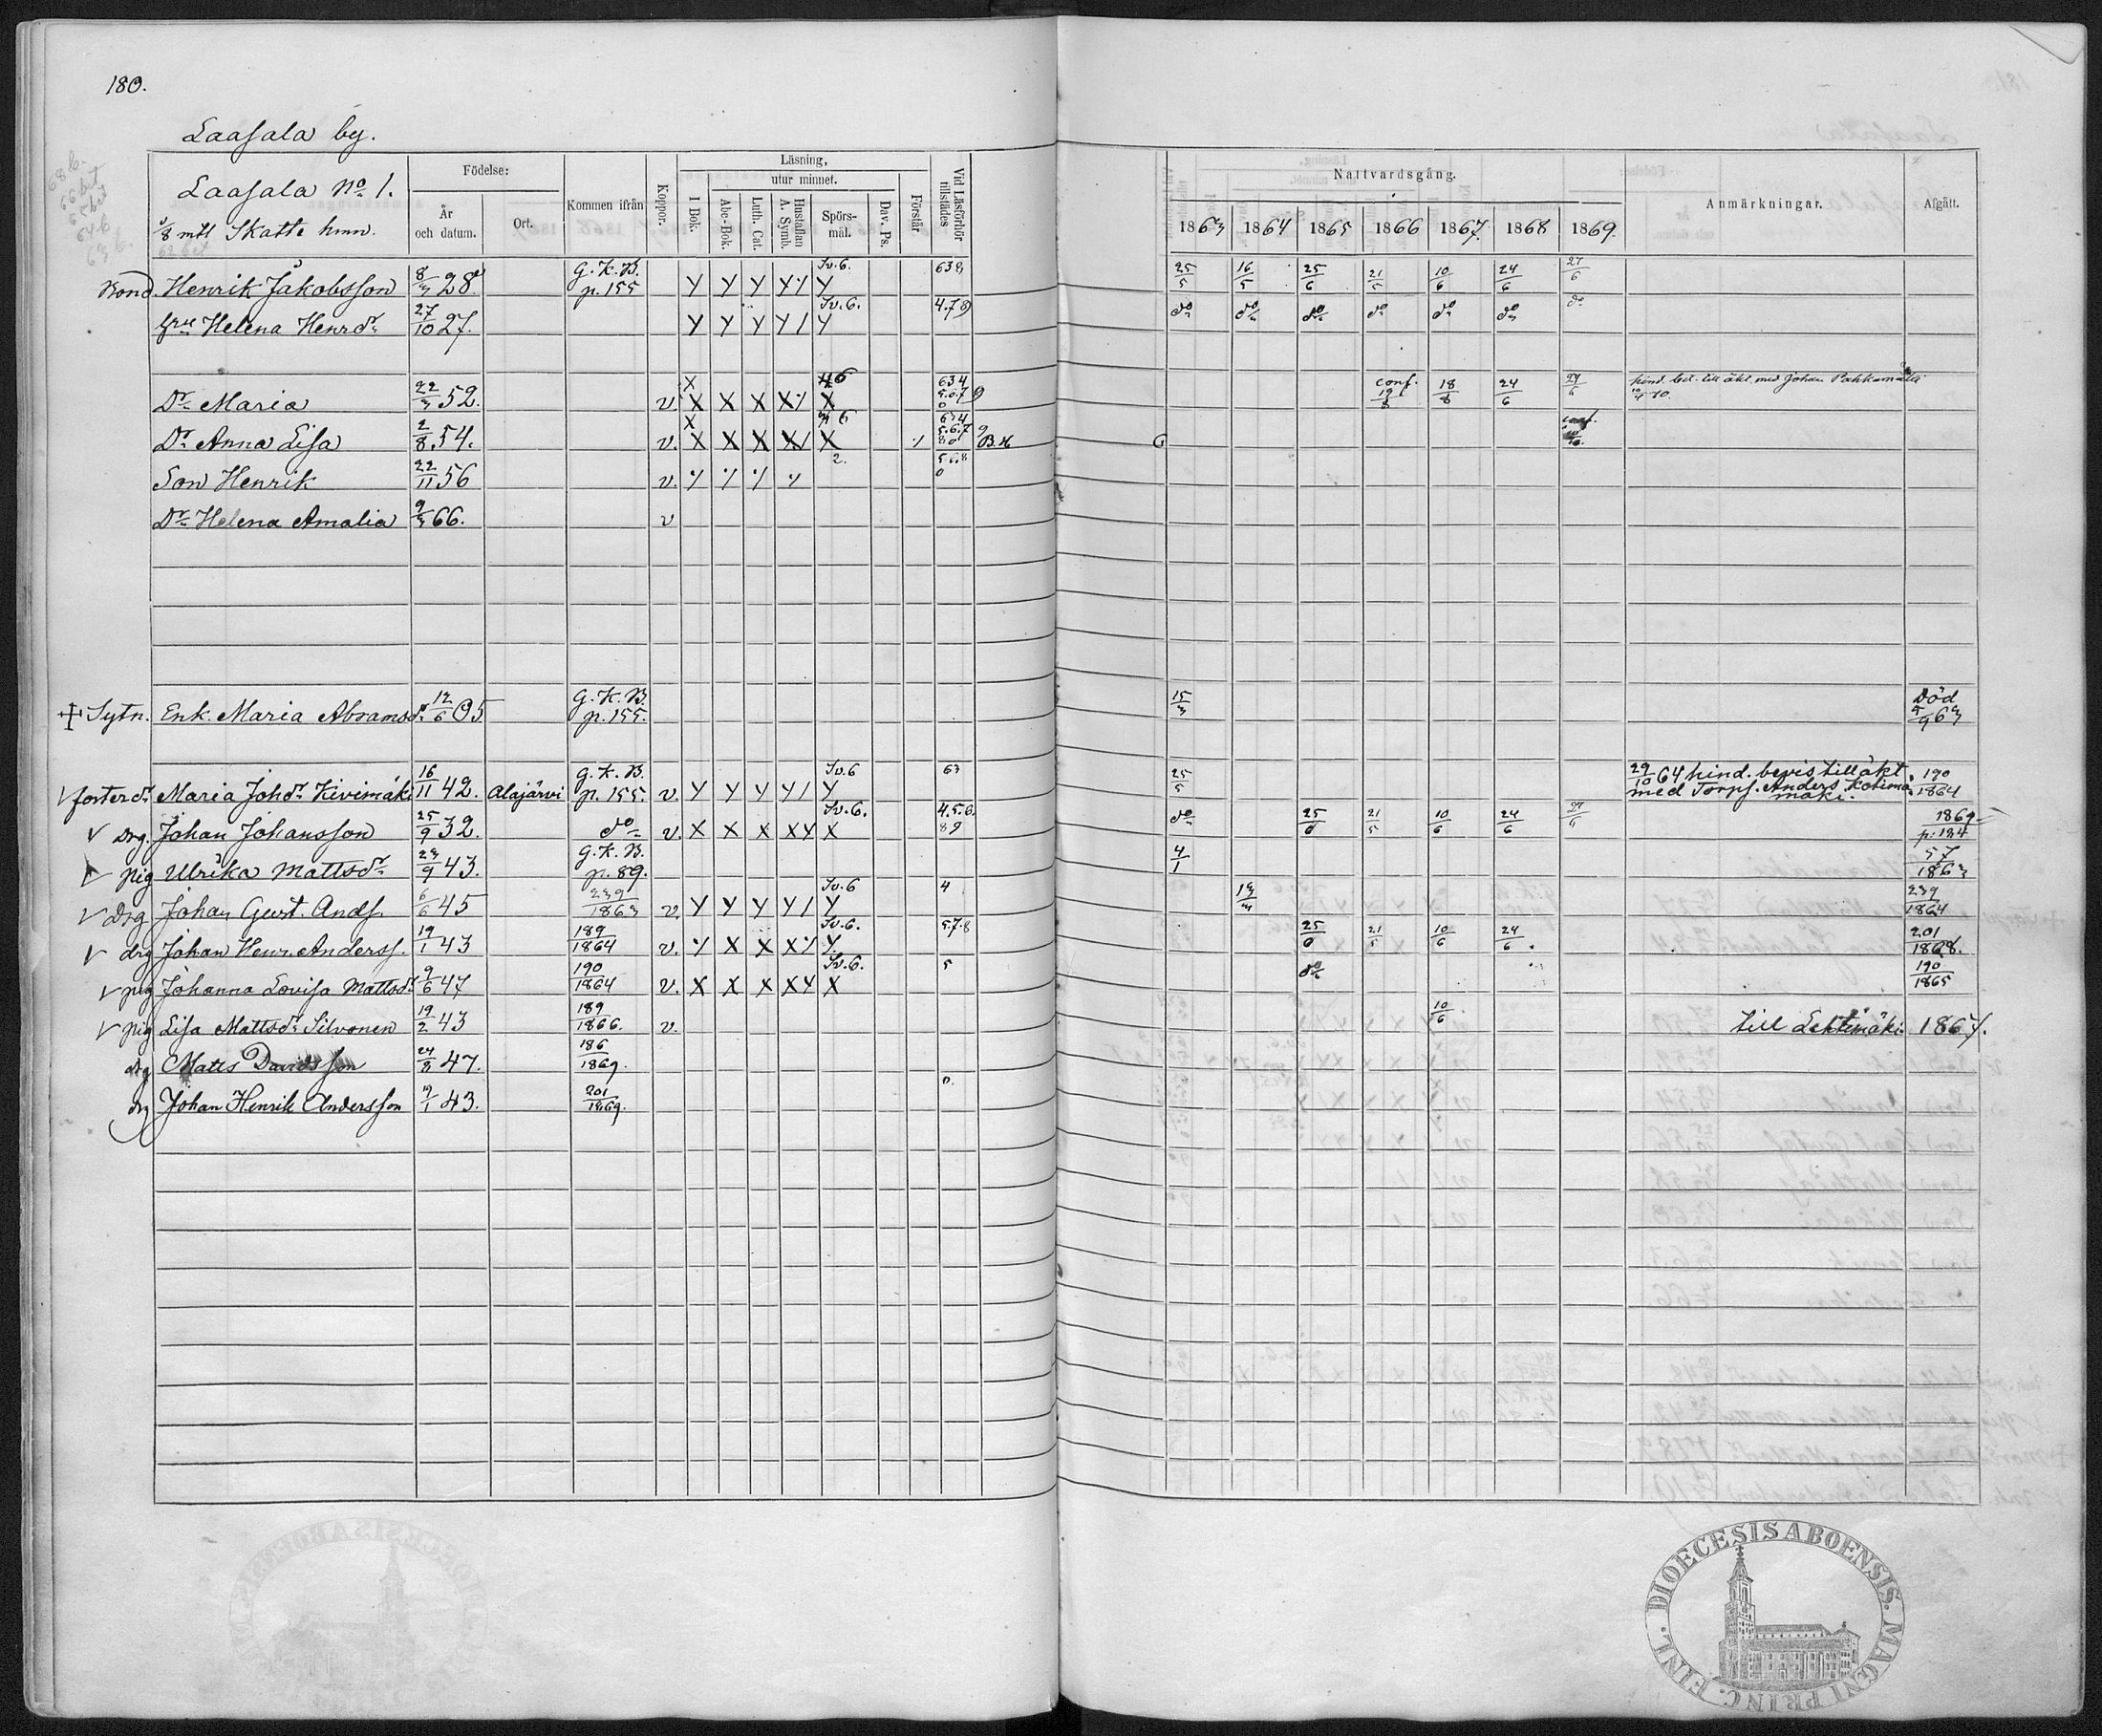 180.
Laasala by.
Laasala No 1.
3/8 mtl Skatte hmn.
Födelse:
År och datum.
Ort.
Kommen ifrån
Koppor.
Läsning,
I Bok.
utur minnet.
Abc-Bok.
Luth. Cat.
Hustaflan A. Symb.
Spörs-mål.
Dav. Ps.
Förstår.
Vid Läsförhör tillstädes
Nattvardsgång.
1863 1864 1865 1866 1867. 1868 1869.
Anmärkningar.
Afgått.
Bond. Henrik Jakobsson 8/3 28 G.K.B. p. 155 Y Y Y Y/ Y Sv. 6. 638 25/5 16/5 25/6 21/5 10/6 24/6 27/6
Hru Helena Henrdr 27/10 27. Y Y Y Y/ Y Sv. 6. 4.7.8 do do do do do do do
Dr Maria 22/3 52. v. X X X X/ X 6 634 5.6.7 9 conf. 18/6 24/6 27/6 hind. bet. till äkt. med Johan Pahkamäki
Dr Anna Lisa 2/8 54. v. X X X X/ X 6 5.6.7 9 B. conf.
Son Henrik 22/11 56 v. 2. 5 6 8
Dr Helena Amalia 9/3 66. v
Sytn. Enk. Maria Abramsdr 12/6 05 G.K.B. p. 155. 15/3 Död 5/9 63
fosterdr Maria Johdr Kivimäki 16/11 42. Alajärvi G.K.B. p. 155. v. Y Y Y Y/ Y Sv. 6 63 25/5 29/10 64 hind. bevis till äkt. med Torp. Anders Kotimäki. 190/1864
Drg. Johan Johansson 25/9 32. do v. X X X XY X Sv. 6. 4.5.6. 89 do 25/6 21/5 10/6 24/6 27/6 1869 p. 184
Pig Ulrika Mattsdr 23/9 43. G.K.B. p. 89. 4/1 57/1863
Drg Johan Gust. Ands. 6/6 45 239/1863 v. Y Y Y Y/ Y Sv. 6 4 13/3 239/1864
drg Johan Henr. Anderss. 19/1 43 189/1864 v. X X X/ Y. Sv. 6. 5.7.8 25/6 21/5 10/6 24/6 201/1868.
pig Johanna Lovisa Mattsdr 9/6 47 190/1864 v. X X X XY X Sv. 6. 5 do 190/1865
pig Lisa Mattsdr Silvonen 19/2 43 189/1866. v. 10/6 till Lehtimäki 1867.
drg Matts Davidsson 24/3 47. 186/1869.
drg Johan Henrik Andersson 19/1 43. 201/1869.
FINL. DIOECESIS ABOENSIS. MAGNI PRINC.